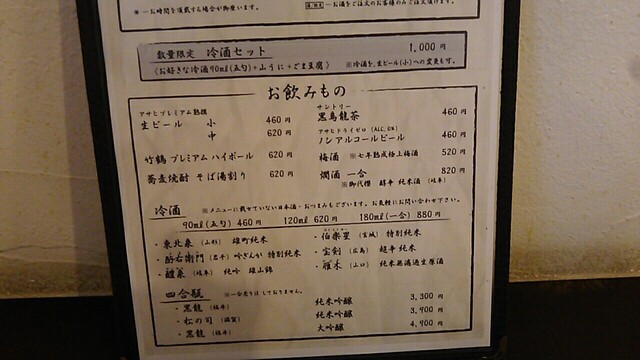 ※一お時間を頂戴する場合が御座います。
一お酒をご注文のお客様のみご注文頂けます。
数量限定 冷酒セット 1,000円
《お好きな冷酒90ml(五勺)+山うに+ごま豆腐》 ※冷酒を、生ビール(小)への変更も可。
お飲みもの
アサヒプレミアム熟撰
生ビール 小 460円
中 620円
竹鶴プレミアムハイボール 620円
蕎麦焼酎 そば湯割り 620円
サントリー
黒烏龍茶 460円
アサヒドライゼロ(ALC.0%)
ノンアルコールビール 460円
梅酒 ※七年熟成極上梅酒 520円
燗酒 一合 820円
※御代櫻 醇辛 純米酒(岐阜)
冷酒 ※メニューに載せていない日本酒・おつまみもございます。お気軽にお問い合わせ下さい。
90ml(五勺) 460円 120ml 620円 180ml(一合) 880円
・東北泉(山形) 雄町純米
・酉右衛門(岩手) 吟ぎんが 特別純米
・醴泉(岐阜) 純吟 雄山錦
・伯楽星(宮城) 特別純米
・宝剣(広島) 超辛 純米
・雁木(山口) 純米無濾過生原酒
四合瓶 ※一合売りはしておりません。
・黒龍(福井) 純米吟醸 3,300円
・松の司(滋賀) 純米吟醸 3,900円
・黒龍(福井) 大吟醸 4,900円